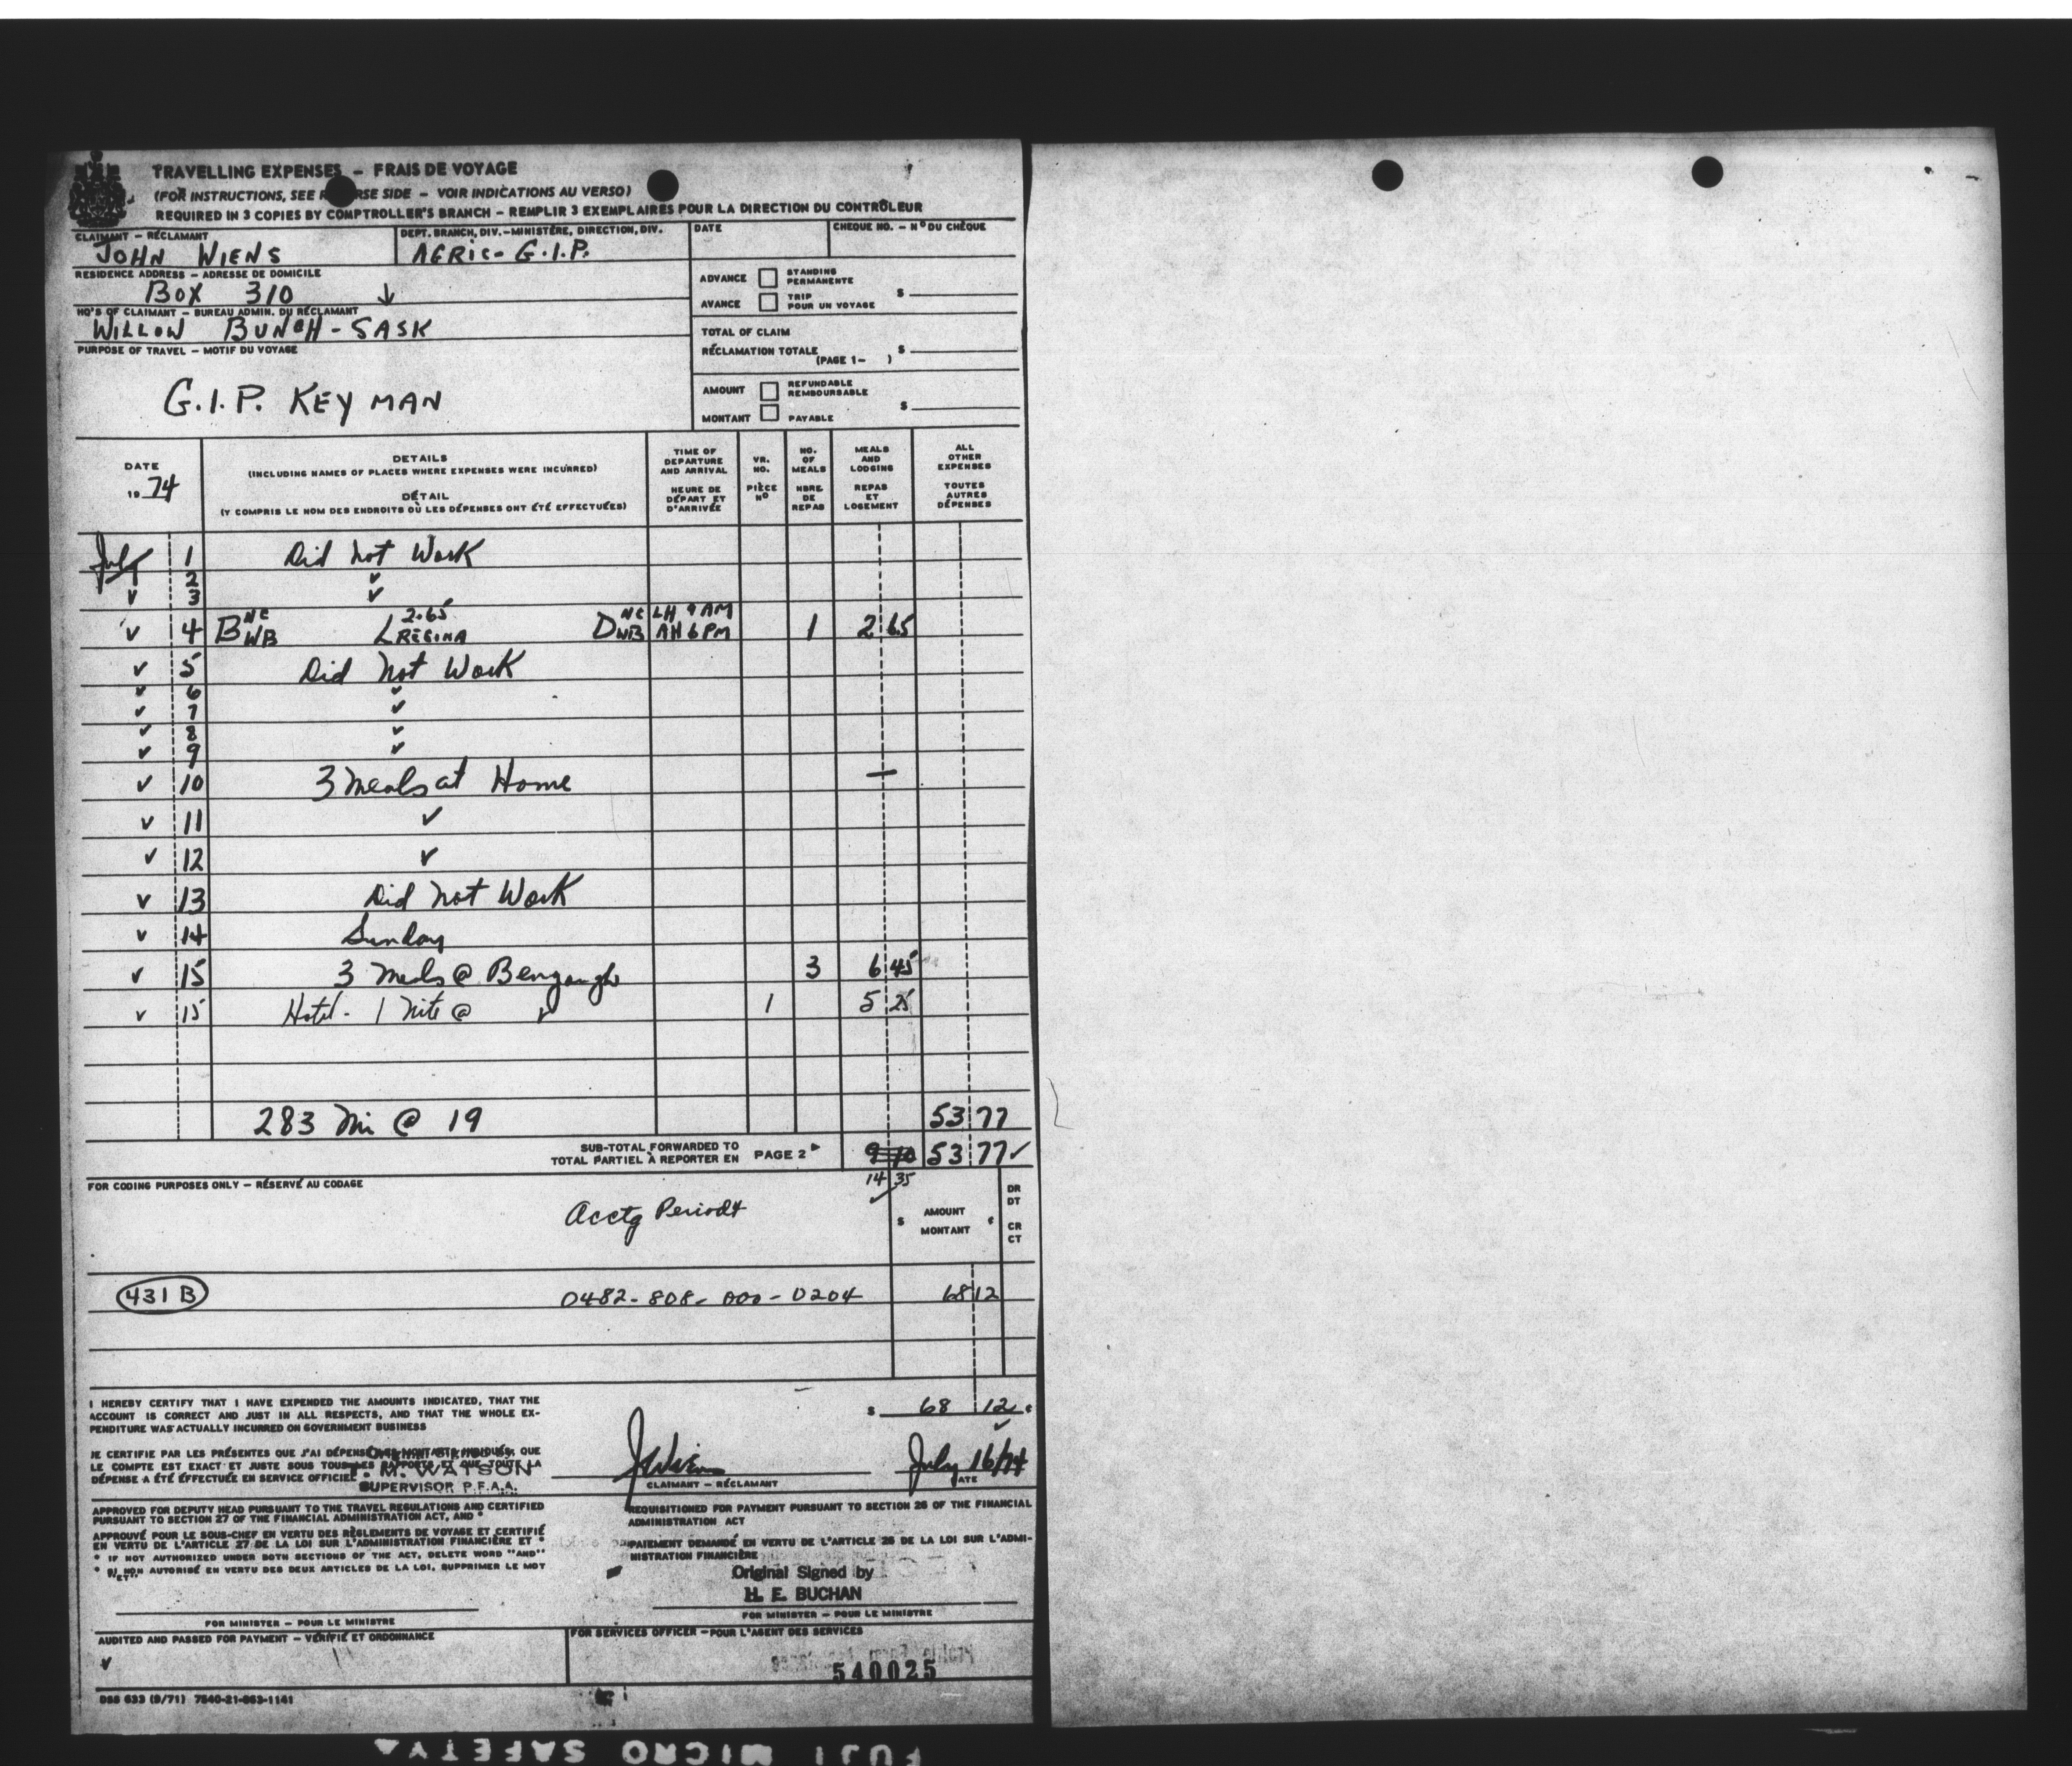 TRAVELLING EXPENSES – FRAIS DE VOYAGE
(FOR INSTRUCTIONS, SEE R RSE SIDE – VOIR INDICATIONS AU VERSO)
REQUIRED IN 3 COPIES BY COMPTROLLER'S BRANCH – REMPLIR 3 EXEMPLAIRES POUR LA DIRECTION DU CONTRÔLEUR
CLAIMANT – RÉCLAMANT
JOHN WIENS
DEPT. BRANCH, DIV.–MINISTÈRE, DIRECTION, DIV.
AGRIC- G.I.P.
DATE
CHEQUE NO. – Nº DU CHÈQUE
RESIDENCE ADDRESS – ADRESSE DE DOMICILE
BOX 310 ↓
HQ'S OF CLAIMANT – BUREAU ADMIN. DU RÉCLAMANT
WILLOW BUNCH - SASK
PURPOSE OF TRAVEL – MOTIF DU VOYAGE
G.I.P. KEY MAN
ADVANCE STANDING PERMANENTE
AVANCE TRIP POUR UN VOYAGE $
TOTAL OF CLAIM
RÉCLAMATION TOTALE $
(PAGE 1– )
AMOUNT REFUNDABLE REMBOURSABLE
MONTANT PAYABLE $
DATE
19 74
DETAILS
(INCLUDING NAMES OF PLACES WHERE EXPENSES WERE INCURRED)
DÉTAIL
(Y COMPRIS LE NOM DES ENDROITS OÙ LES DÉPENSES ONT ÉTÉ EFFECTUÉES)
TIME OF DEPARTURE AND ARRIVAL
HEURE DE DÉPART ET D'ARRIVÉE
VR. NO.
PIÈCE Nº
NO. OF MEALS
NBRE. DE REPAS
MEALS AND LODGING
REPAS ET LOGEMENT
ALL OTHER EXPENSES
TOUTES AUTRES DÉPENSES
July 1 Did not Work
✓ 2 ✓
✓ 3 ✓
✓ 4 B NC WB L 2.65 REGINA D NC WB LH 9 AM AH 6 PM 1 2 65
✓ 5 Did not Work
✓ 6 ✓
✓ 7 ✓
✓ 8 ✓
✓ 9 ✓
✓ 10 3 Meals at Home —
✓ 11 ✓
✓ 12 ✓
✓ 13 Did not Work
✓ 14 Sunday
✓ 15 3 Meals @ Bengough 3 6 45
✓ 15 Hotel - 1 Nite @ ✓ 1 5 25
283 Mi @ 19 53 77
SUB-TOTAL FORWARDED TO
TOTAL PARTIEL À REPORTER EN PAGE 2 9 10 53 77 ✓
14 35
✓
FOR CODING PURPOSES ONLY – RÉSERVÉ AU CODAGE
Acctg Period 4
$ AMOUNT MONTANT ¢
DR DT
CR CT
431 B 0482-808-000-0204 68 12
I HEREBY CERTIFY THAT I HAVE EXPENDED THE AMOUNTS INDICATED, THAT THE
ACCOUNT IS CORRECT AND JUST IN ALL RESPECTS, AND THAT THE WHOLE EX-
PENDITURE WAS ACTUALLY INCURRED ON GOVERNMENT BUSINESS
$ 68 12 ¢
✓
JE CERTIFIE PAR LES PRÉSENTES QUE J'AI DÉPENSÉ LES MONTANTS INDIQUÉS, QUE
LE COMPTE EST EXACT ET JUSTE SOUS TOUS LES RAPPORTS ET QUE TOUTE LA
DÉPENSE A ÉTÉ EFFECTUÉE EN SERVICE OFFICIEL
M. WATSON
SUPERVISOR P.F.A.A.
J Wiens
CLAIMANT – RÉCLAMANT
July 16/74
DATE
APPROVED FOR DEPUTY HEAD PURSUANT TO THE TRAVEL REGULATIONS AND CERTIFIED
PURSUANT TO SECTION 27 OF THE FINANCIAL ADMINISTRATION ACT, AND *
APPROUVÉ POUR LE SOUS-CHEF EN VERTU DES RÈGLEMENTS DE VOYAGE ET CERTIFIÉ
EN VERTU DE L'ARTICLE 27 DE LA LOI SUR L'ADMINISTRATION FINANCIÈRE ET *
* IF NOT AUTHORIZED UNDER BOTH SECTIONS OF THE ACT, DELETE WORD "AND"
* SI NON AUTORISÉ EN VERTU DES DEUX ARTICLES DE LA LOI, SUPPRIMER LE MOT
"ET"
REQUISITIONED FOR PAYMENT PURSUANT TO SECTION 26 OF THE FINANCIAL
ADMINISTRATION ACT
PAIEMENT DEMANDÉ EN VERTU DE L'ARTICLE 26 DE LA LOI SUR L'ADMI-
NISTRATION FINANCIÈRE
Original Signed by
H. E. BUCHAN
FOR MINISTER – POUR LE MINISTRE
FOR MINISTER – POUR LE MINISTRE
AUDITED AND PASSED FOR PAYMENT – VÉRIFIÉ ET ORDONNANCÉ
✓
FOR SERVICES OFFICER – POUR L'AGENT DES SERVICES
540025
DSS 633 (9/71) 7540-21-863-1141
FUJI MICRO SAFETY